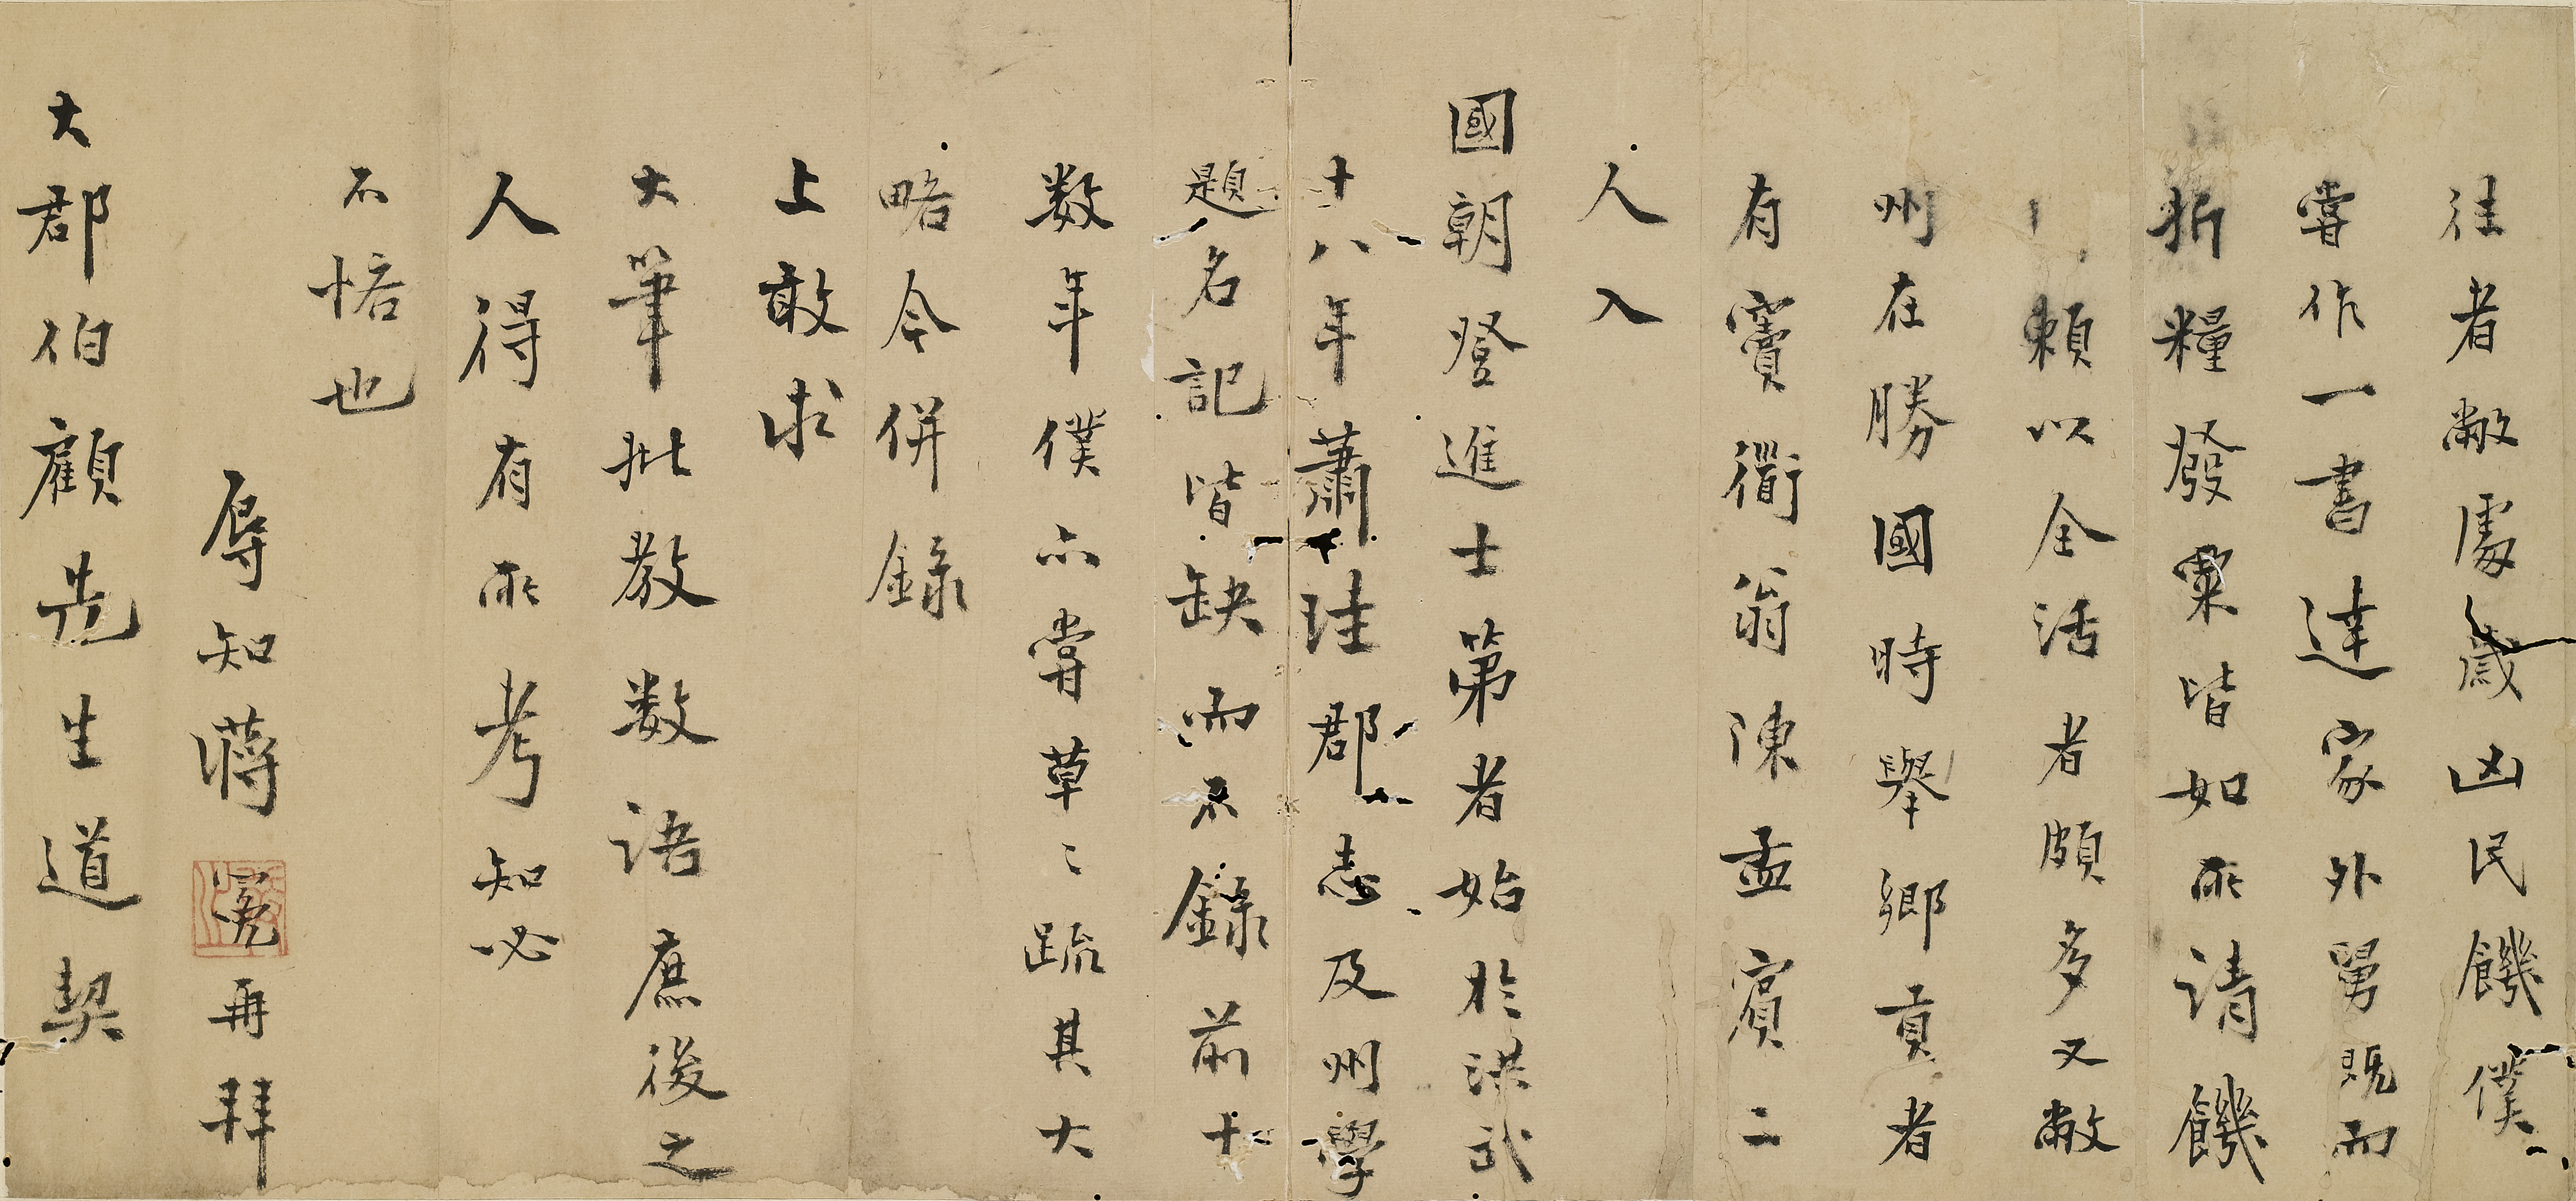 往者敝處歲凶民饑僕
嘗作一書達家外舅既而
折糧發粟皆如所請饑
賴以全活者頗多又敝
州在勝國時舉鄉貢者
有竇衜翁陳孟賓二
人入
國朝登進士第者始於洪武
十八年蕭珪郡志及州學
題名記皆缺而不錄前十
数年僕亦嘗草〻疏其大
略今併錄
上敢求
大筆批教数語庶後之
人得有所考知必
不悋也
辱知蔣冕再拜
大郡伯顧先生道契